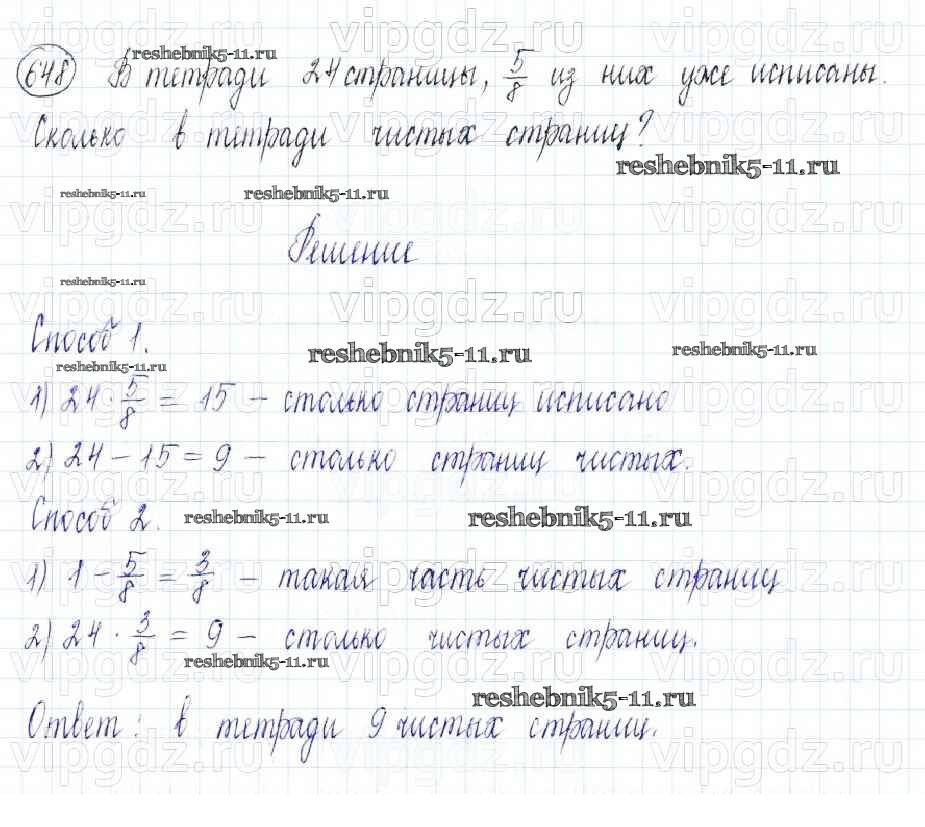 648 В тетради 24 страницы, 5/8 из них уже исписаны.
Сколько в тетради чистых страниц?
Решение
Способ 1.
1) 24 · 5/8 = 15 – столько страниц исписано
2) 24 – 15 = 9 – столько страниц чистых.
Способ 2.
1) 1 – 5/8 = 3/8 – такая часть чистых страниц
2) 24 · 3/8 = 9 – столько чистых страниц.
Ответ: в тетради 9 чистых страниц.
reshebnik5-11.ru
vipgdz.ru